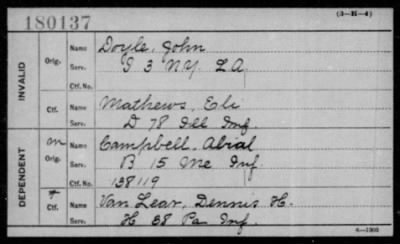 180137
(3-H-4)
INVALID
Orig.
Name Doyle, John
Serv. I 3 N.Y. L A
Ctf. No.
Ctf.
Name Mathews, Eli
Serv. D 78 Ill Inf.
DEPENDENT
m
Orig.
Name Campbell, Abial
Serv. B 15 Me Inf.
Ctf. No. 138119
Ctf.
Name Van Lear, Dennis H.
Serv. H 38 Pa Inf.